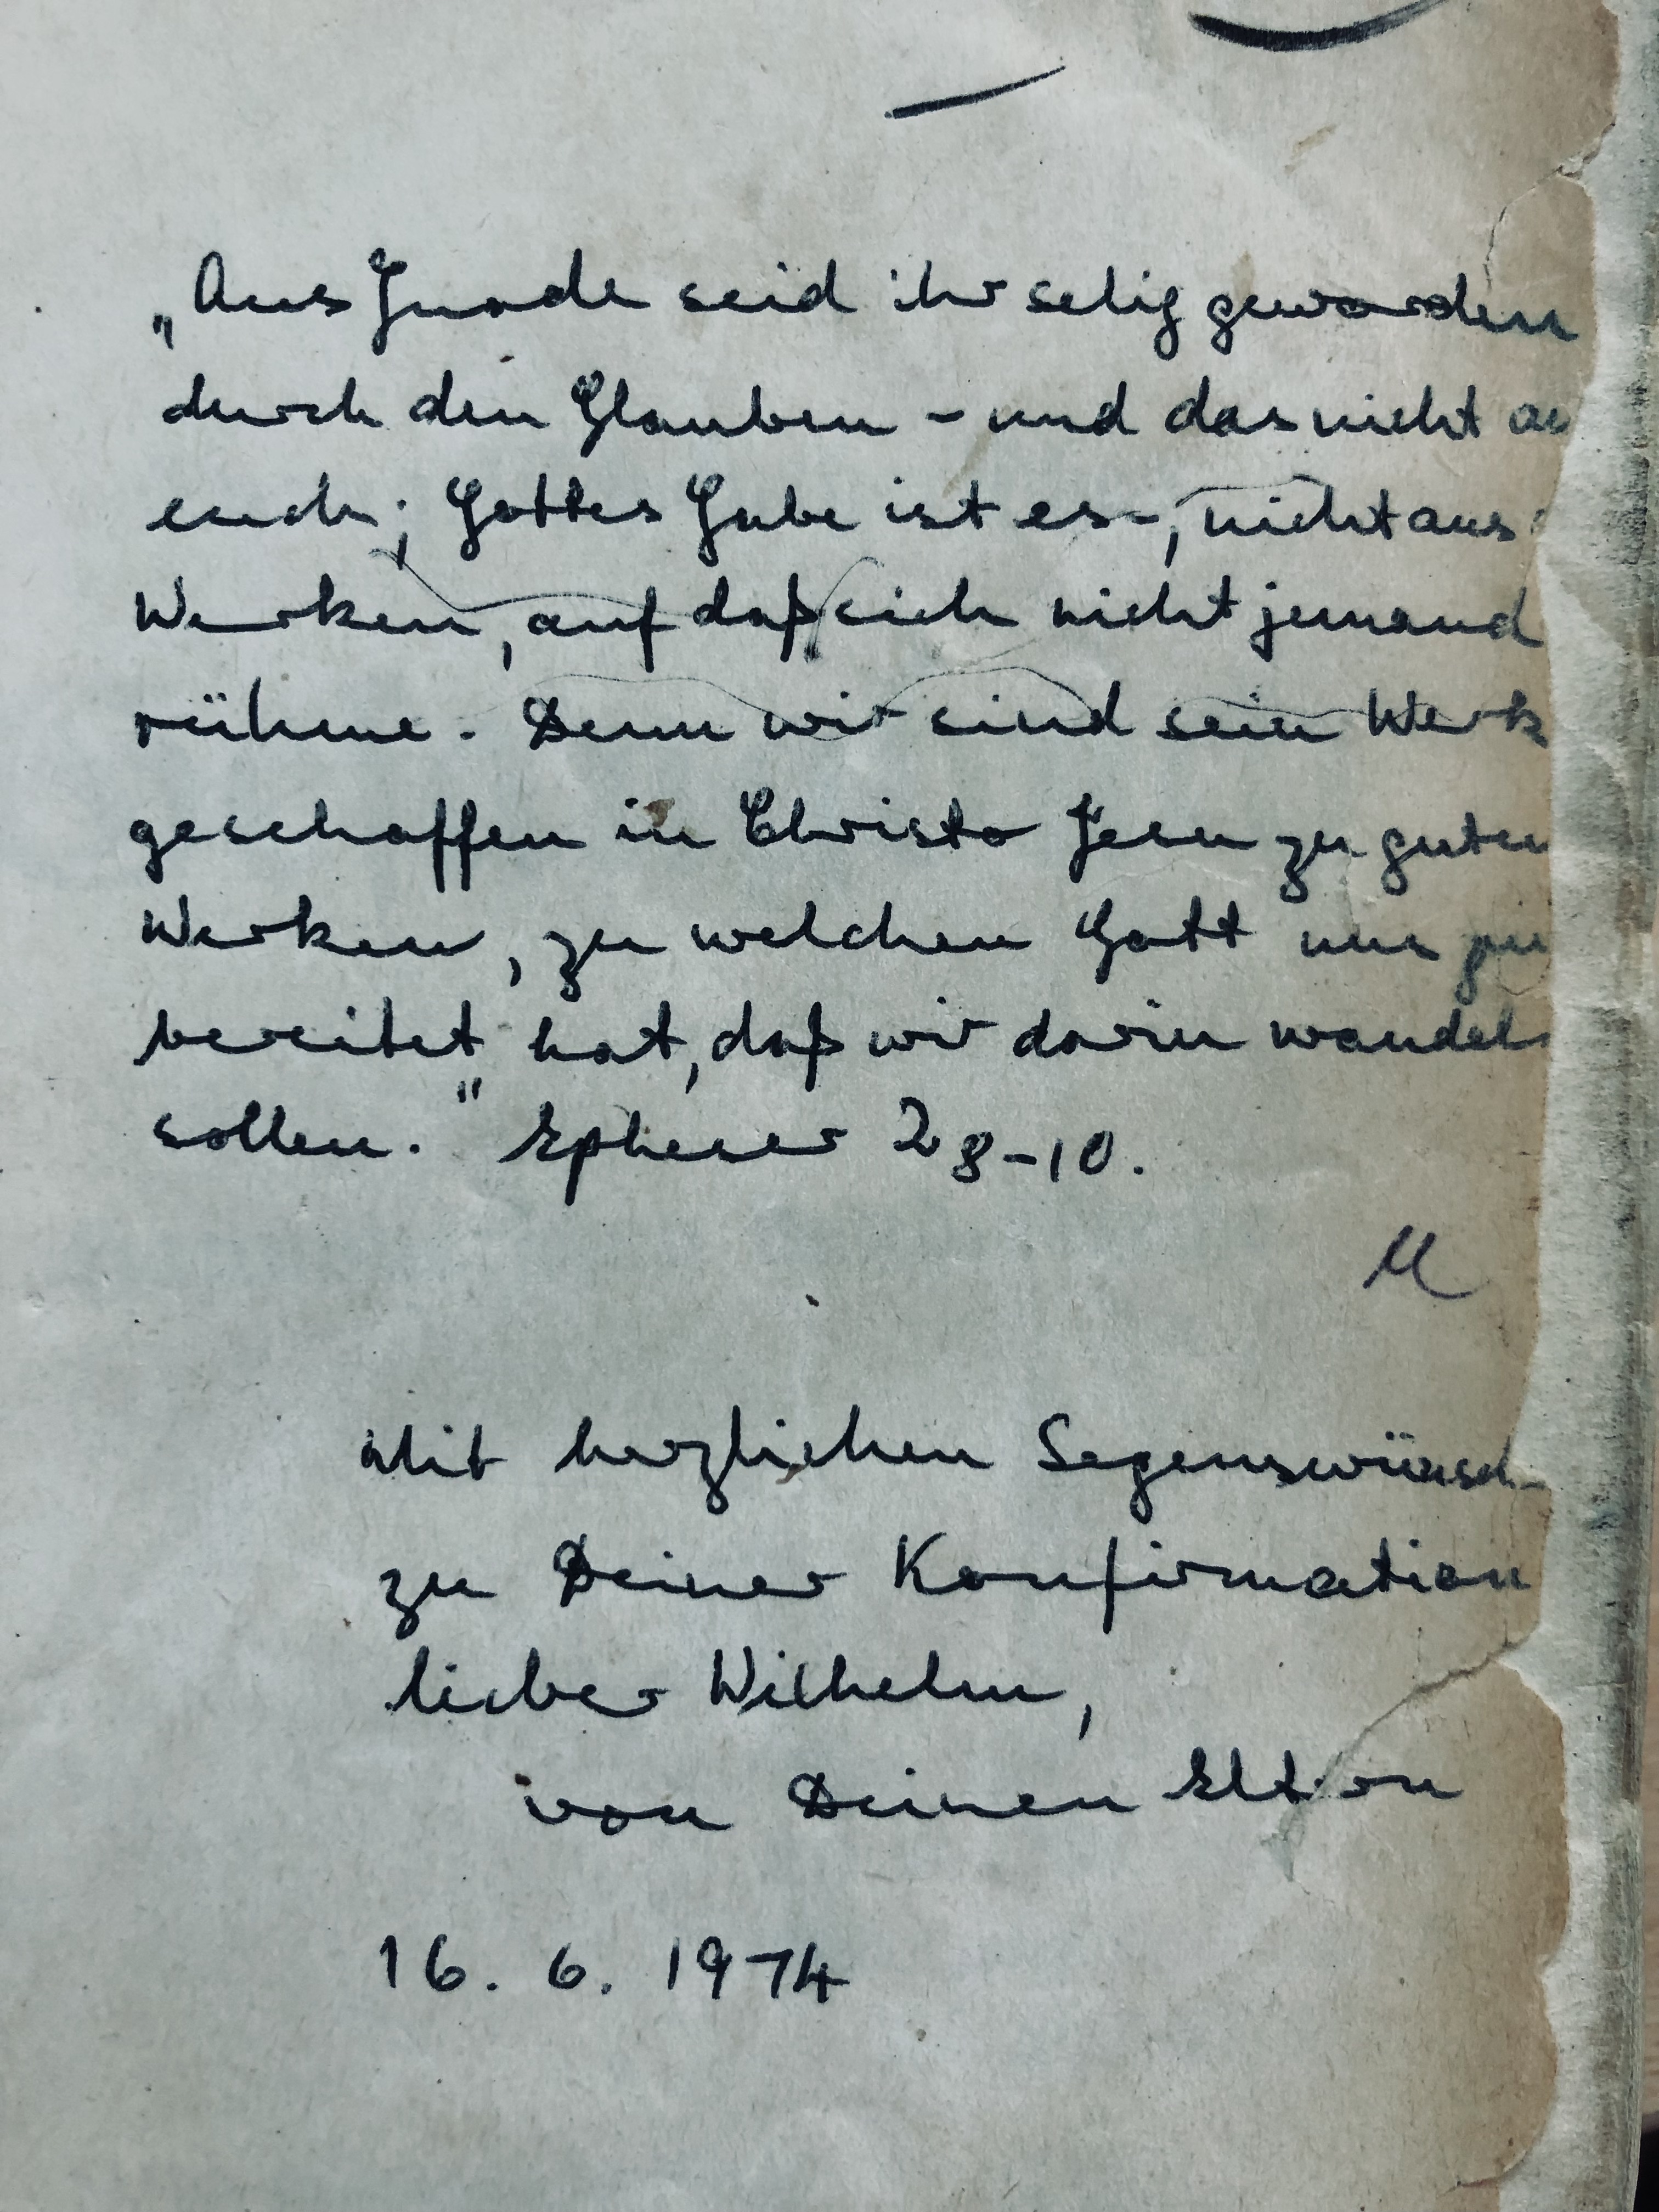 „Aus Gnade seid ihr selig geworden
durch den Glauben - und das nicht au
euch; Gottes Gabe ist es -, nicht aus
Werken, auf daß sich nicht jemand
rühme. Denn wir sind sein Werk
geschaffen in Christo Jesu zu guten
Werken, zu welchen Gott uns zu
bereitet hat, daß wir darin wandeln
sollen." Epheser 2 8-10.
Mit herzlichen Segenswünsch
zu Deiner Konfirmation
lieber Wilhelm,
von Deinen Eltern
16. 6. 1974